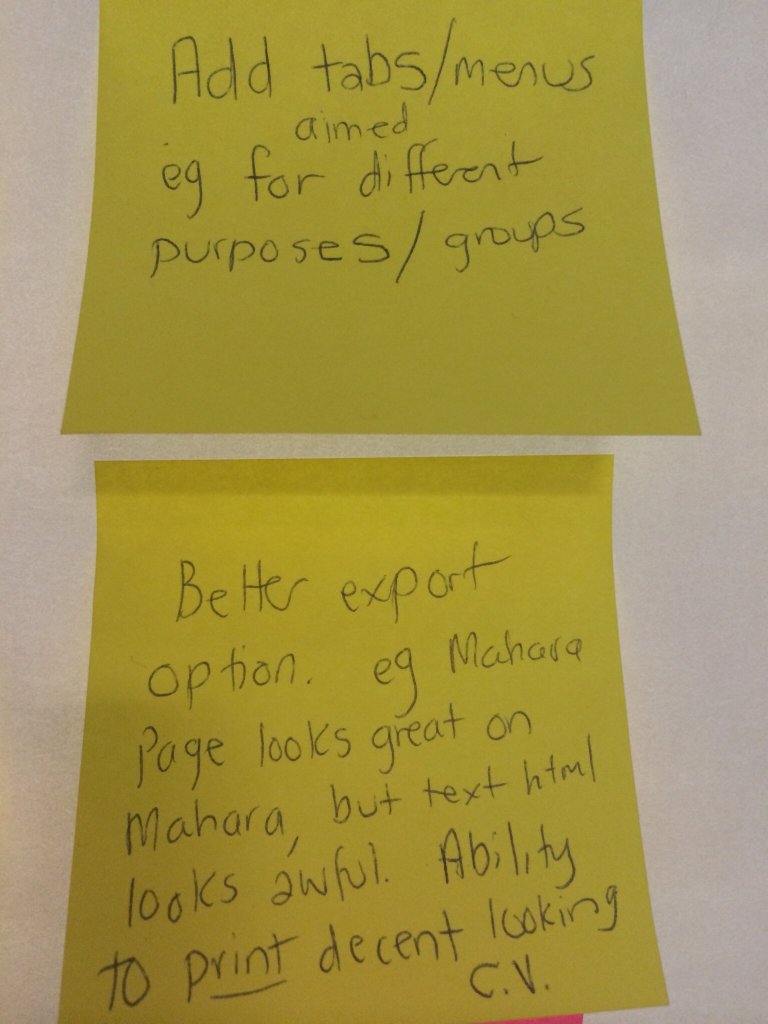 Add tabs/menus
aimed
eg for different
purposes/groups
Better export
option. eg Mahara
Page looks great on
Mahara, but text html
looks awful. Ability
to print decent looking
C.V.